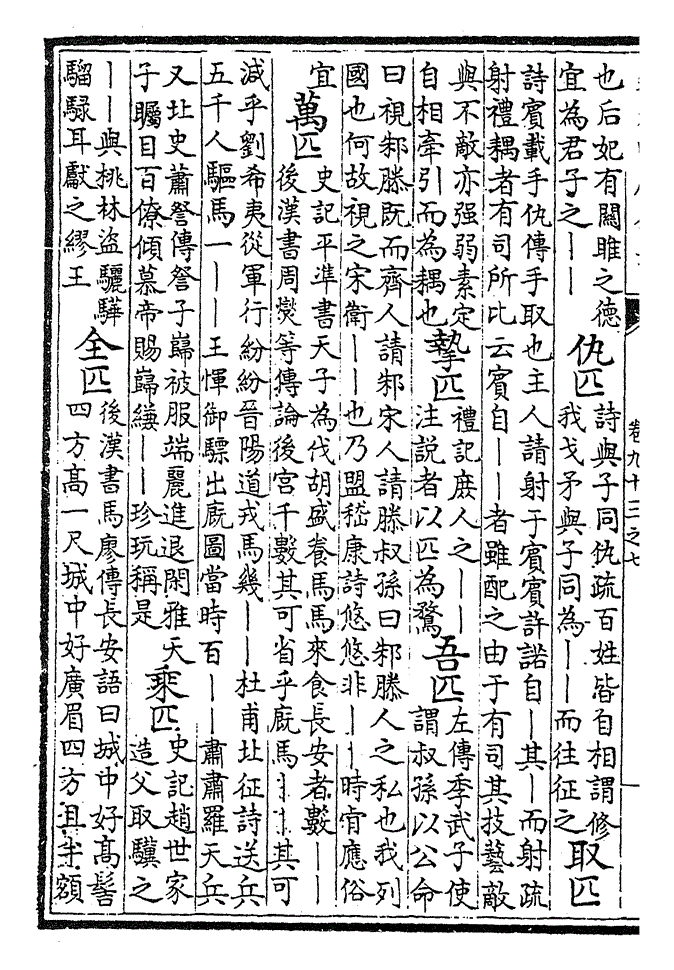 也后妃有關雎之德
宜為君子之｜｜
仇匹
詩與子同仇疏百姓皆自相謂修
我戈矛與子同為｜｜而往征之
取匹
詩賓載手仇傳手取也主人請射于賓賓許諾自｜其｜而射疏
射禮耦者有司所比云賓自｜｜者雖配之由于有司其技藝敵
與不敵亦强弱素定
自相牽引而為耦也
摯匹
禮記庻人之｜｜
注説者以匹為鶩
吾匹
左傳季武子使
謂叔孫以公命
曰視邾滕既而齊人請邾宋人請滕叔孫曰邾滕人之私也我列
國也何故視之宋衛｜｜也乃盟嵇康詩悠悠非｜｜時肯應俗
宜
萬匹
史記平準書天子為伐胡盛養馬馬來食長安者數｜｜
後漢書周爕等傳論後宫千數其可省乎廐馬｜｜其可
減乎劉希夷從軍行紛紛晉陽道戎馬幾｜｜杜甫北征詩送兵
五千人驅馬一｜｜王惲御驃出廐圖當時百｜｜肅肅羅天兵
又北史蕭詧傳詧子巋被服端麗進退閑雅天
子矚目百僚傾慕帝賜巋縑｜｜珍玩稱是
乘匹
史記趙世家
造父取驥之
｜｜與桃林盜驪驊
騮騄耳獻之繆王
全匹
後漢書馬廖傳長安語曰城中好髙髻
四方髙一尺城中好廣眉四方且半額
卷九十三之七